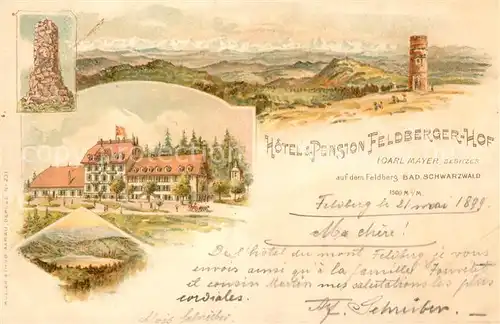 HÔTEL & PENSION FELDBERGER-HOF
(CARL MAYER, BESITZER)
auf dem Feldberg BAD. SCHWARZWALD
1300 M. ü/M.
Felsberg le 21 mai 1899.
Ma chère!
De l'hôtel du mont Felsberg je vous
envois ainsi qu'à la famille
et cousin Martin mes salutations les plus
cordiales.
Af. Schreiber.